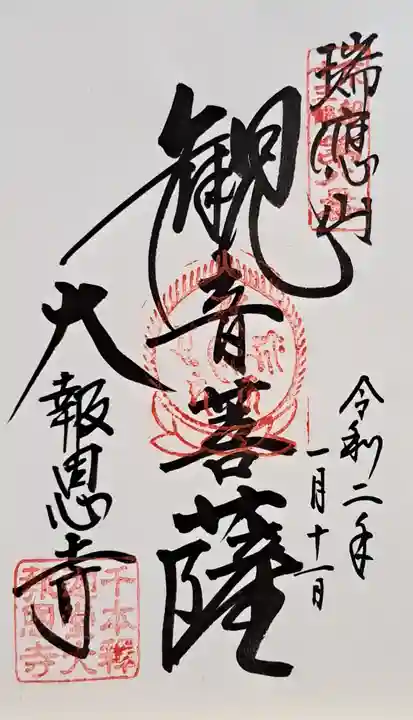 瑞應山
令和二年
一月十一日
観音菩薩
大報恩寺
千本釋
迦堂大
報恩寺